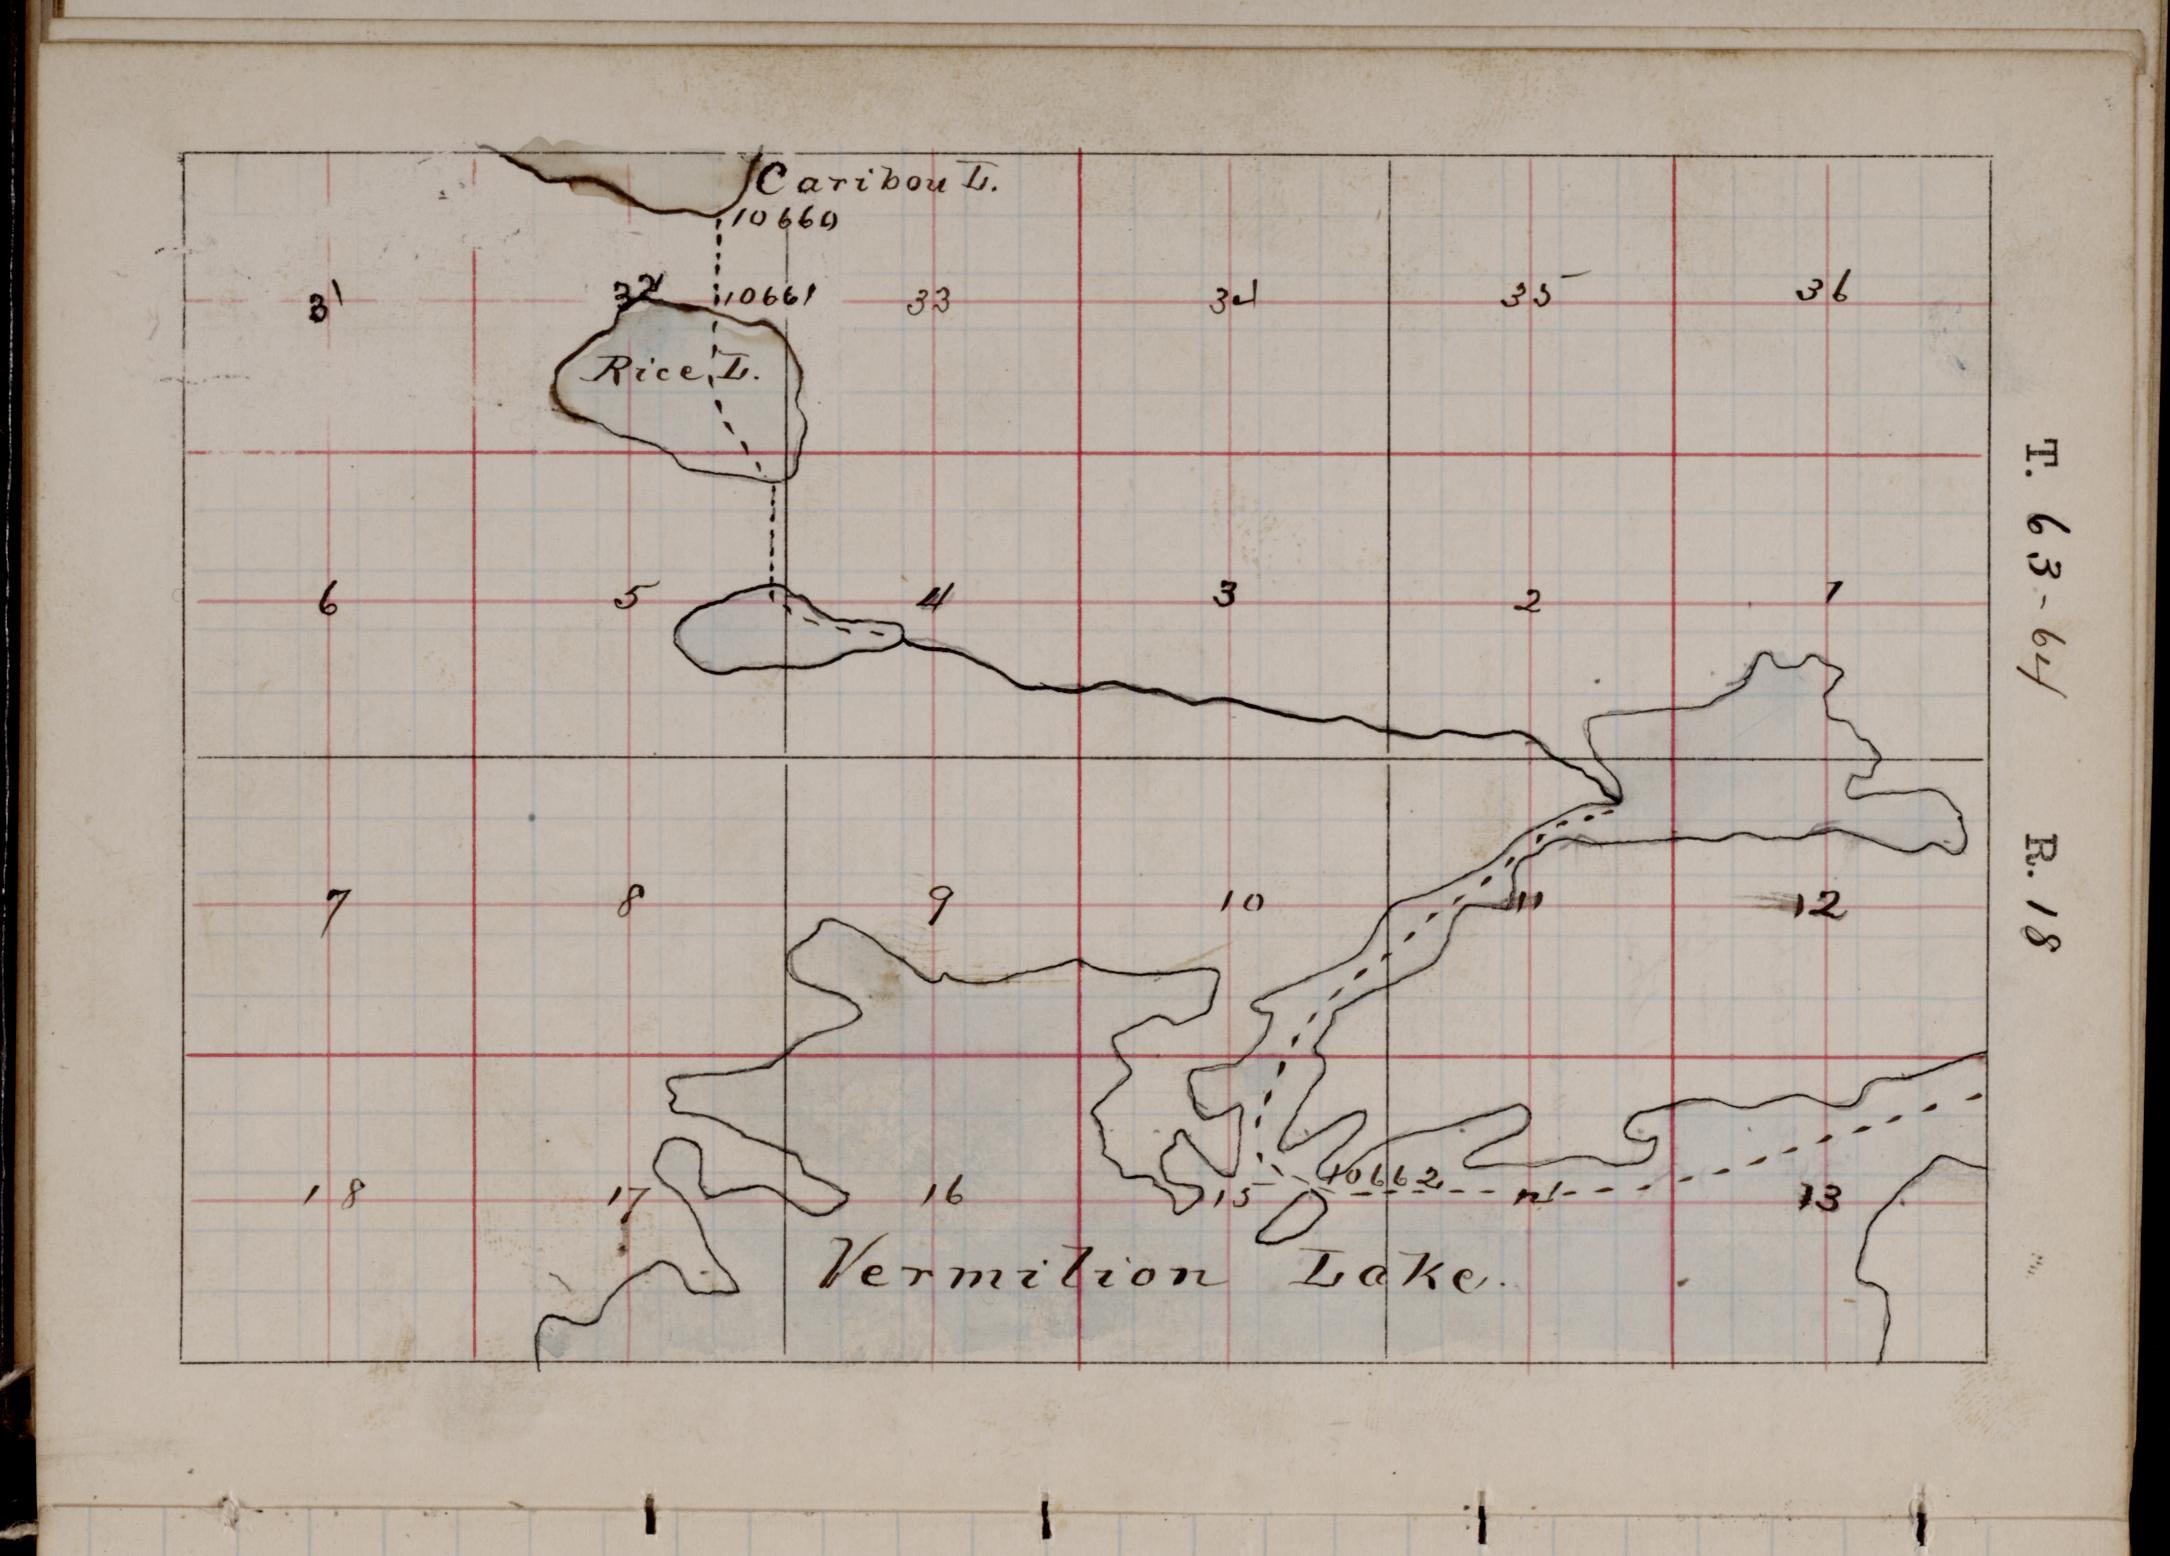 Caribou L.
10660
31 32 10661 33 34 35 36
Rice L.
6 5 4 3 2 1
7 8 9 10 11 12
10662
18 17 16 15 14 13
Vermilion Lake.
T. 63-64 R. 18